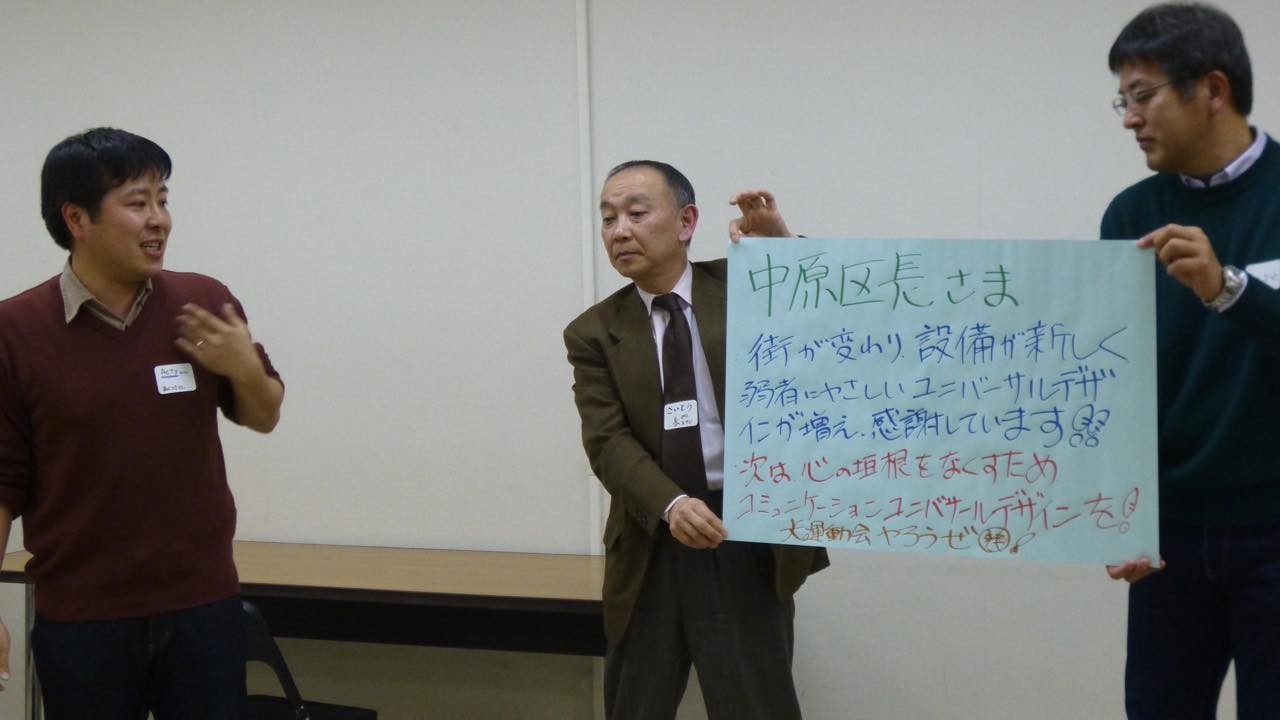 中原区長さま
街が変わり、設備が新しく
弱者にやさしいユニバーサルデザ
インが増え、感謝しています
次は心の垣根をなくすため
コミュニケーションユニバサールデザインを!
大運動会やろうぜ
ACTY
さいむら